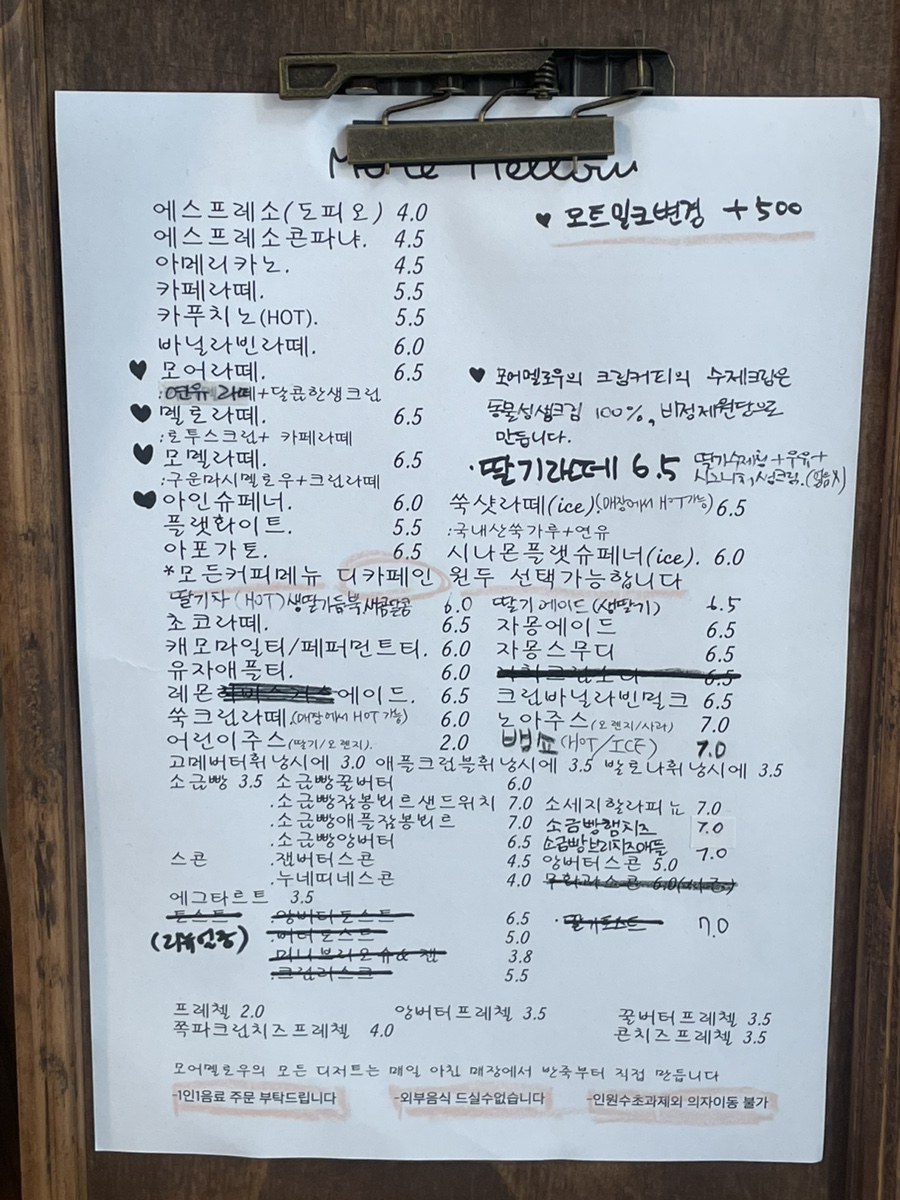 More Mellow
에스프레소(도피오) 4.0
에스프레소콘파냐. 4.5
아메리카노. 4.5
카페라떼. 5.5
카푸치노(HOT). 5.5
바닐라빈라떼. 6.0
♥ 모어라떼. 6.5
:연유라떼+달콤한생크림
♥ 멜로라떼. 6.5
:호투스크림+ 카페라떼
♥ 모멜라떼. 6.5
:구운마시멜로우+크림라떼
♥ 아인슈페너. 6.0
플랫화이트. 5.5
아포가토. 6.5
♥ 오트밀크변경 +500
♥ 모어멜로우의 크림커피의 수제크림은
동물성생크림 100%, 비정제원당으로
만듭니다.
·딸기라떼 6.5 딸기수제청+우유+
생크림.
쑥샷라떼(ice)(매장에서 HOT가능) 6.5
:국내산쑥가루+연유
시나몬플랫슈페너(ice). 6.0
*모든커피메뉴 디카페인 원두 선택가능합니다
딸기차(HOT)생딸기듬뿍새콤달콤 6.0
초코라떼. 6.5
캐모마일티/페퍼민트티. 6.0
유자애플티. 6.0
레몬에이드. 6.5
쑥크림라떼.(매장에서 HOT가능) 6.0
어린이주스(딸기/오렌지). 2.0
딸기에이드(생딸기) 6.5
자몽에이드 6.5
자몽스무디 6.5
6.5
크림바닐라빈밀크 6.5
노아주스(오렌지/사과) 7.0
뱅쇼(HOT/ICE) 7.0
고메버터휘낭시에 3.0 애플크럼블휘낭시에 3.5 발로나휘낭시에 3.5
소금빵 3.5 소금빵꿀버터 6.0
.소금빵잠봉뵈르샌드위치 7.0 소세지할라피뇨 7.0
.소금빵애플잠봉뵈르 7.0 소금빵햄치즈 7.0
.소금빵앙버터 6.5 소금빵브리치즈애플 7.0
스콘 .잼버터스콘 4.5 앙버터스콘 5.0
.누네띠네스콘 4.0 무화과스콘 6.0
에그타르트 3.5
토스트 .앙버터토스트 6.5 ·딸기토스트 7.0
(리뉴얼중) .버터토스트 5.0
.미니브리오슈&잼 3.8
.크림러스크 5.5
프레첼 2.0 앙버터프레첼 3.5 꿀버터프레첼 3.5
쪽파크림치즈프레첼 4.0 콘치즈프레첼 3.5
모어멜로우의 모든 디저트는 매일 아침 매장에서 반죽부터 직접 만듭니다
-1인1음료 주문 부탁드립니다 -외부음식 드실수없습니다 -인원수초과제외 의자이동 불가